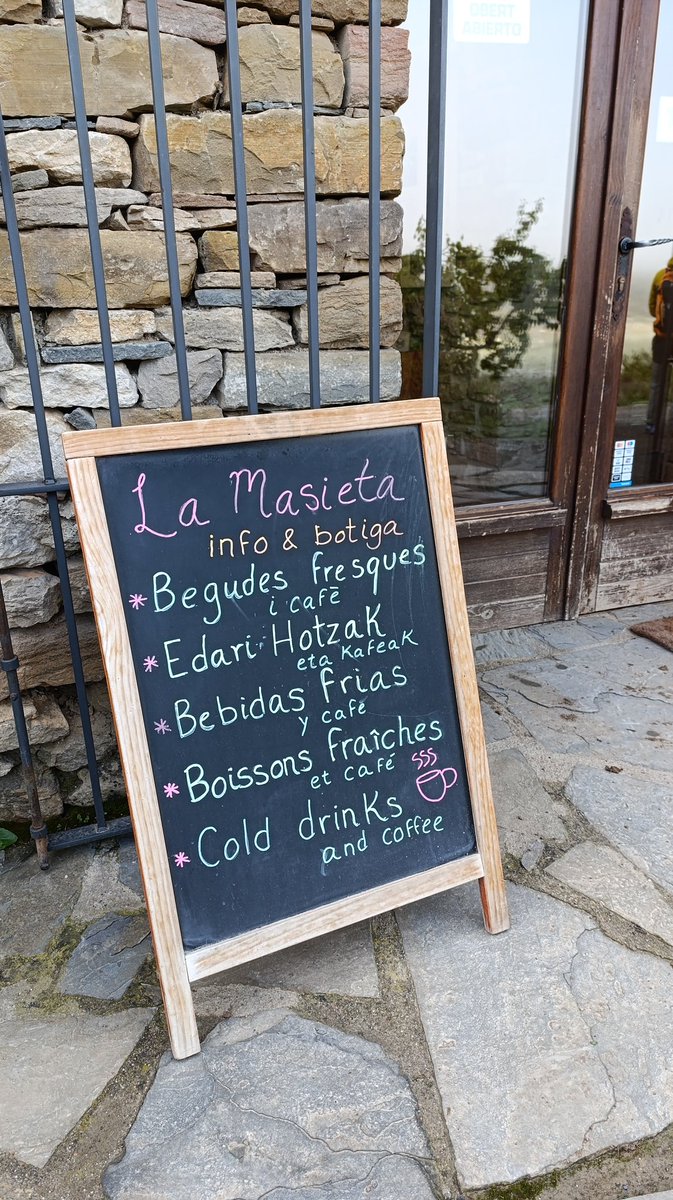 OBERT
ABIERTO
La Masieta
info & botiga
* Begudes fresques
i café
* Edari Hotzak
eta Kafeak
* Bebidas frias
y café
* Boissons fraîches
et café
* Cold drinks
and coffee